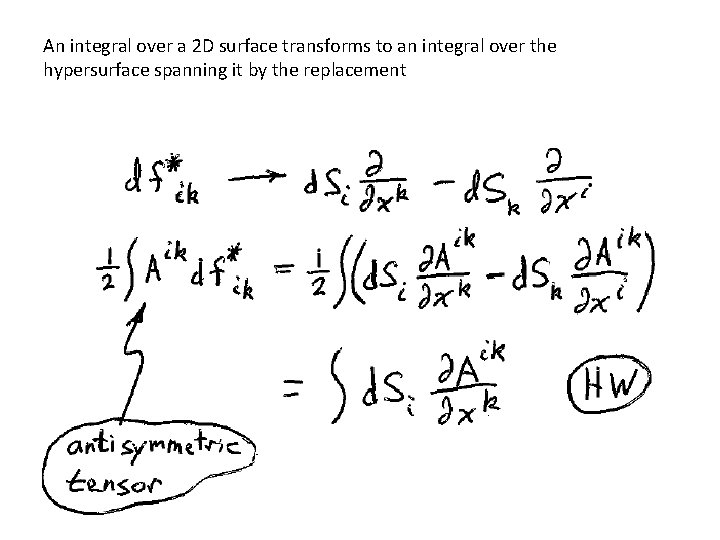 An integral over a 2D surface transforms to an integral over the
hypersurface spanning it by the replacement
df*_{ik} → dS_i ∂/∂x^k − dS_k ∂/∂x^i
1/2 ∫ A^{ik} df*_{ik} = 1/2 ∫ (dS_i ∂A^{ik}/∂x^k − dS_k ∂A^{ik}/∂x^i)
= ∫ dS_i ∂A^{ik}/∂x^k HW
antisymmetric
tensor